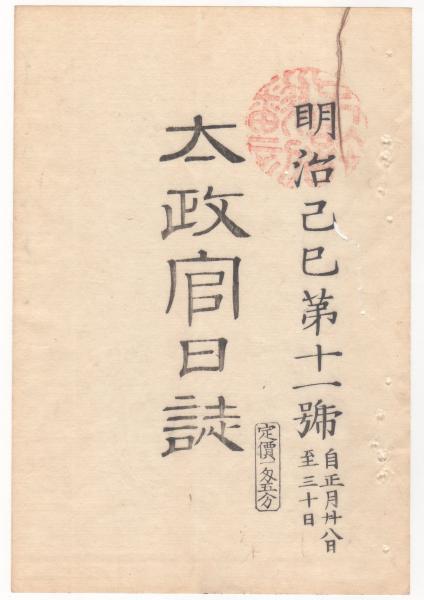 明治己巳第十一號
自正月廿八日
至三十日
太政官日誌
定價一匁五分